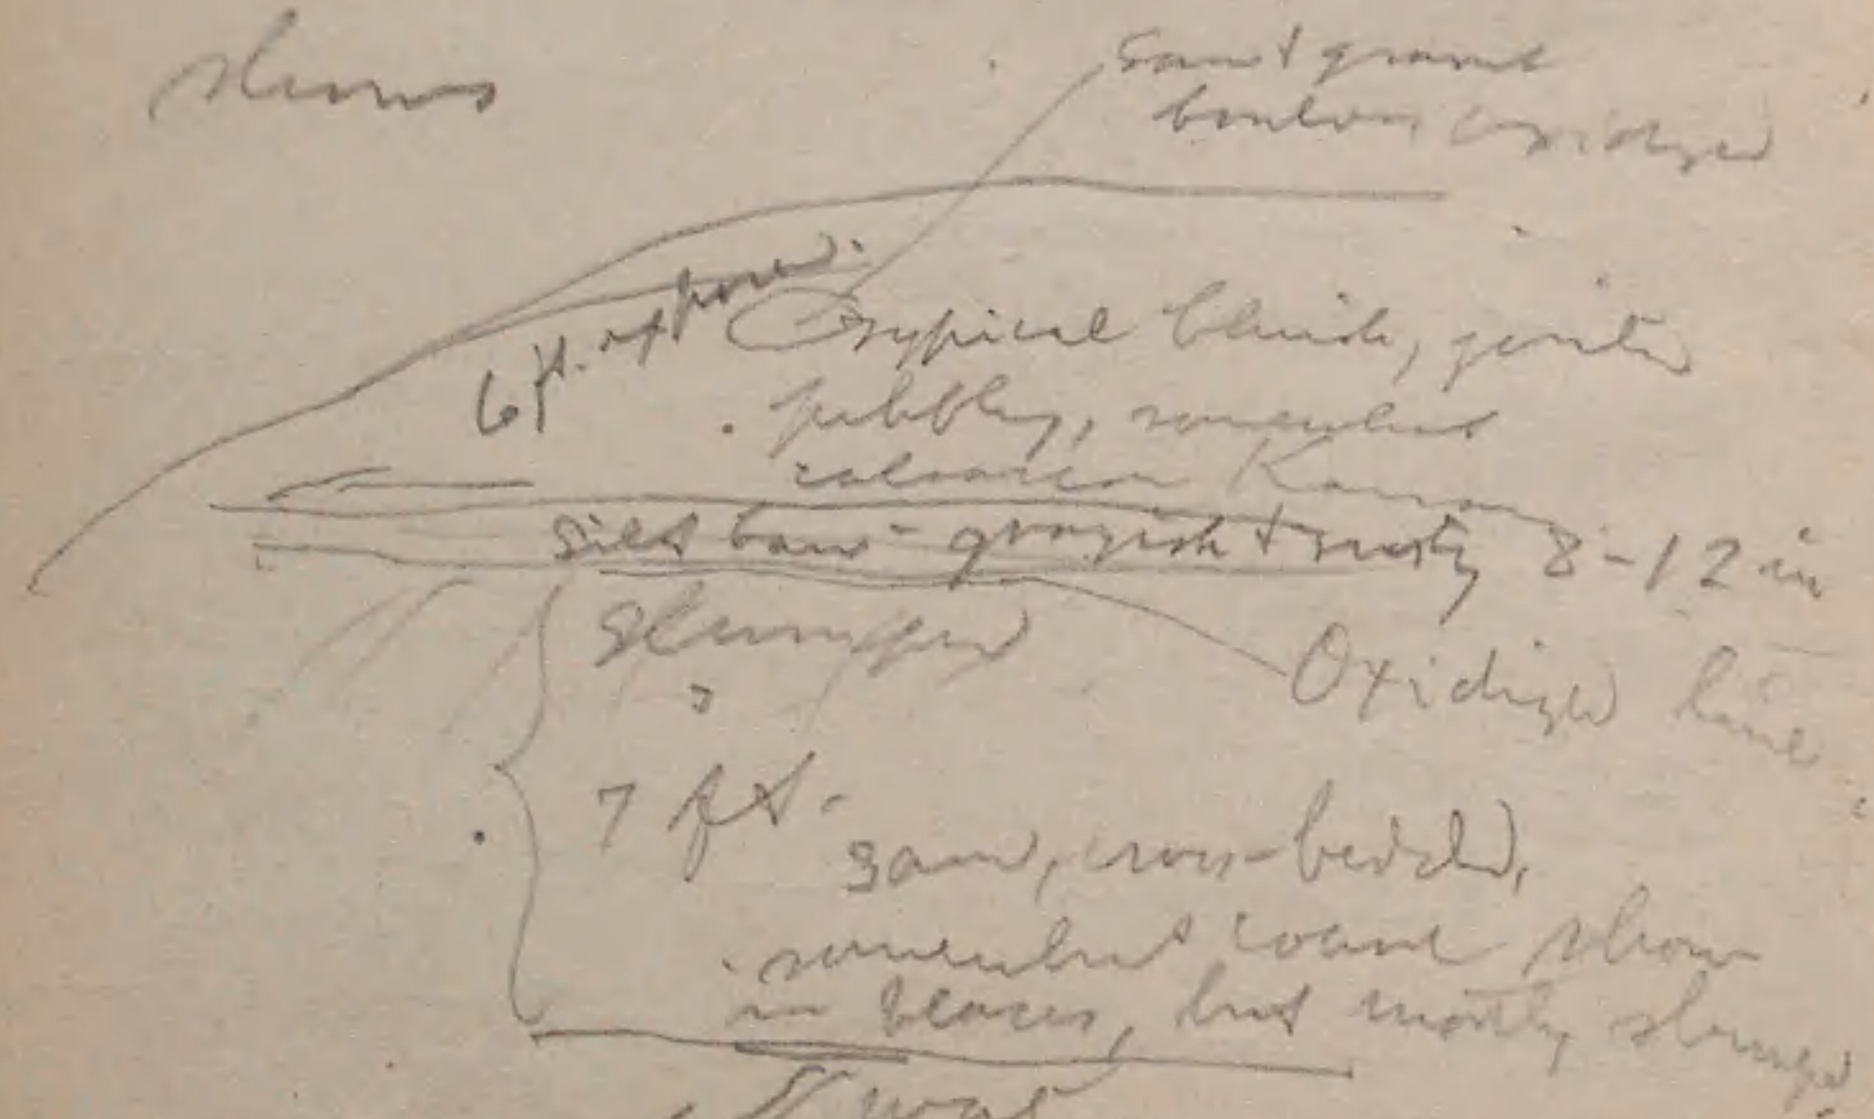 shows
Sand + gravel
boulder, oxidized
6 ft. exposed.
Typical bluish, jointed
pebbly, somewhat
calcareous Kansan
Silt band - grayish + rusty 8-12 in
Slumped
Oxidized line
7 ft.
sand, cross-bedded,
somewhat coarse show
in places, but mostly slumped